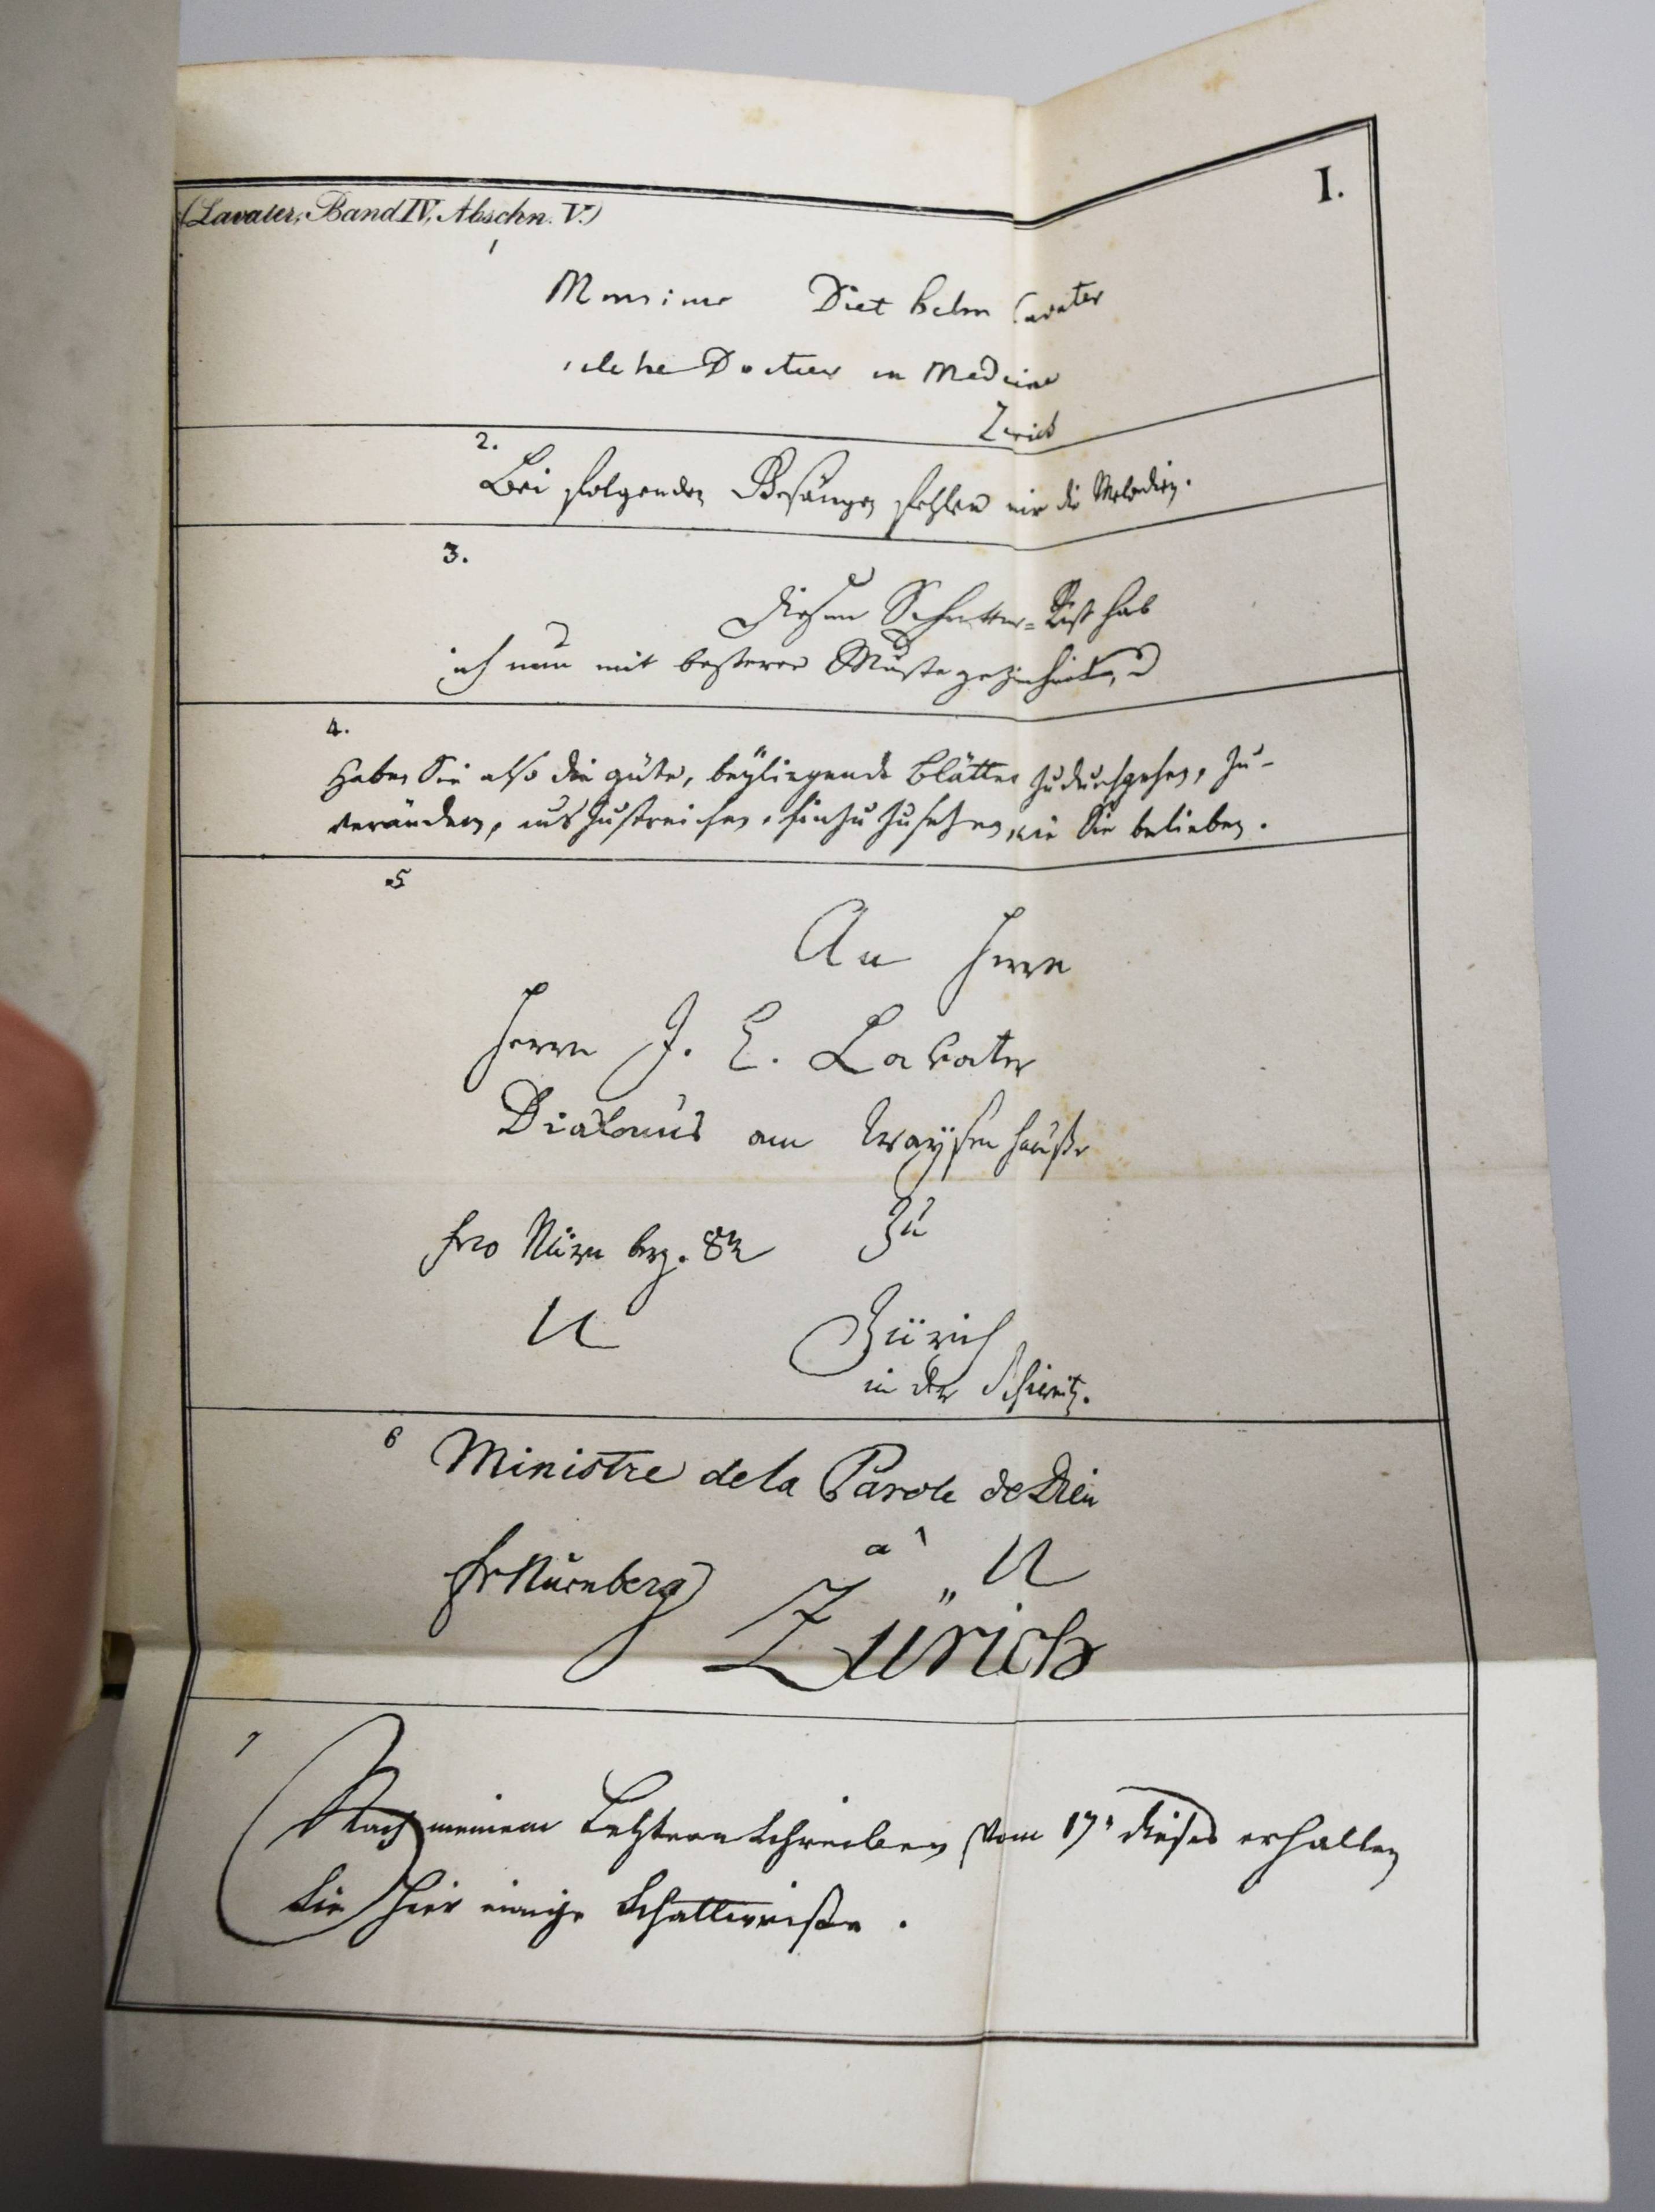 I.
(Lavater, Band IV, Abschn. V.)
1
Monsieur Diethelm Lavater
Docteur en Medecine
Zurich
2.
Bei folgenden Gesängen fehlen mir die Melodien.
3.
Diesen Schatten=Riß hab
ich nun mit besserer Muße gezeichnet,
4.
Haben Sie also die güte, beyliegende Blätter zudurchgehen, zu-
verändern, auszustreichen, hinzuzusetzen, wie Sie belieben.
5
An Herrn
Herrn J. C. Lavater
Diakonus am Waysenhauße
frco Nürnberg. Zu
Zürich
in der Schweitz.
6
Ministre de la Parole de Dieu
à
fr Nürnberg
Zürich
7
Nach meinem Letztern Schreiben vom 17. dieses erhalten
Sie hier einige Schattenriße.